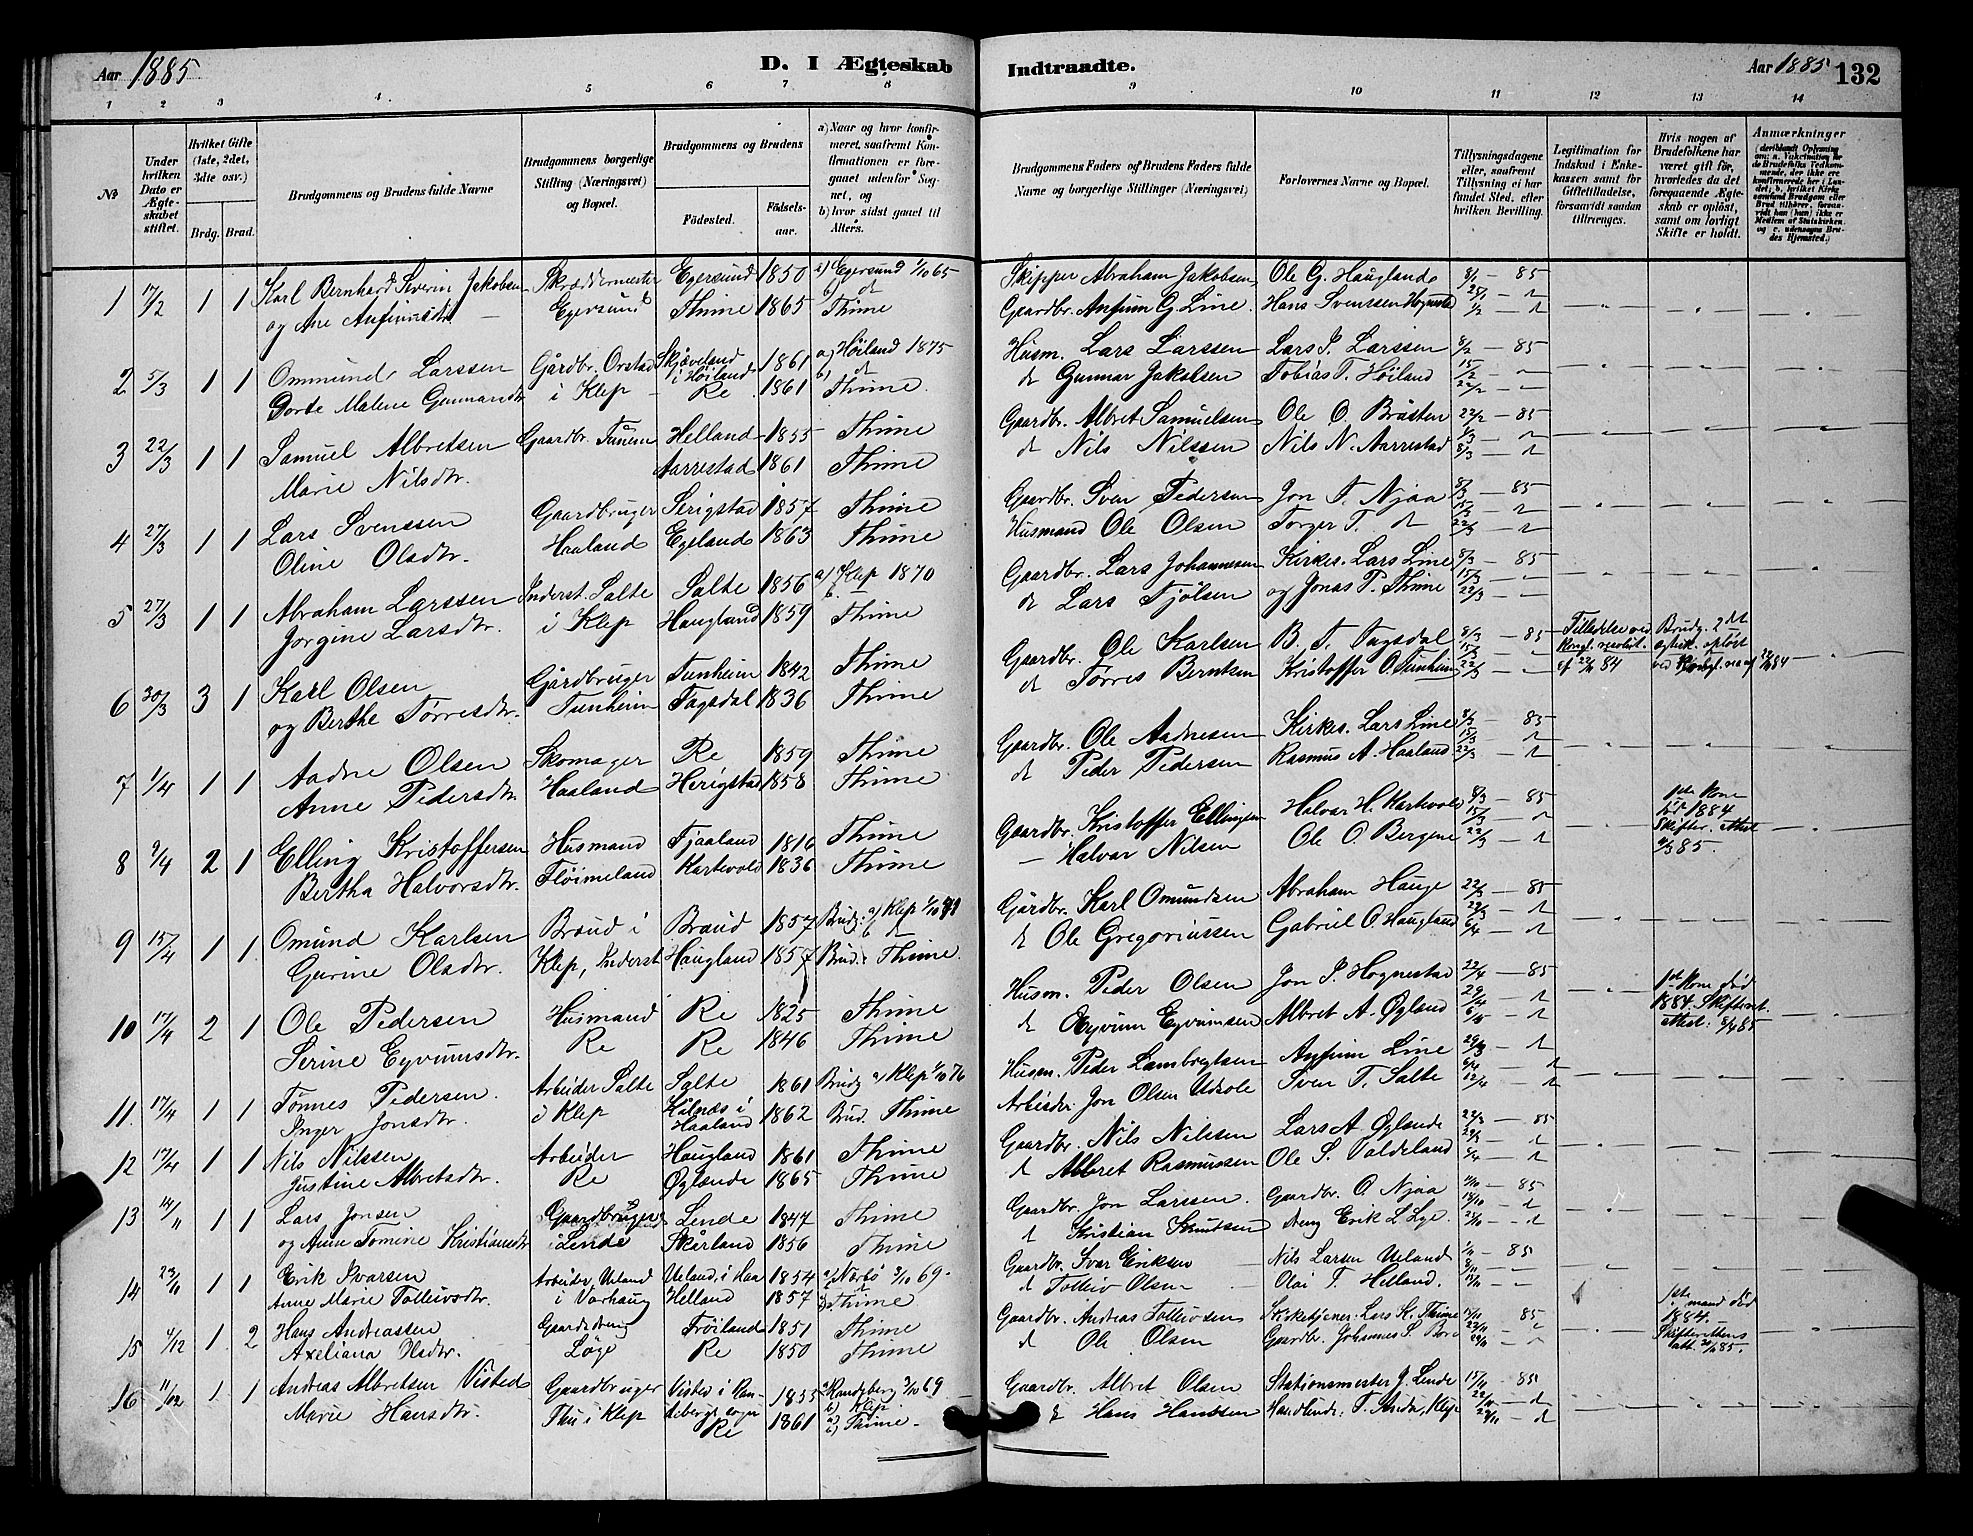 Aar 1885
D. I Ægteskab
1 2 3 4 5 6 7 8
№
Under hvilken Dato er Ægteskabet stiftet.
Hvilket Gifte (1ste, 2det, 3die osv.)
Brdg. Brud.
Brudgommens og Brudens fulde Navne
Brudgommens borgerlige Stilling (Næringsvei) og Bopæl.
Brudgommens og Brudens
Födested. Födsels-aar.
a) Naar og hvor konfirmeret, saafremt Konfirmationen er foregaaet udenfor Sognet, og
b) hvor sidst gaaet til Alters.
1 17/2 1 1 Karl Bernhard Severin Jakobsen Skræddermester Egersund 1850 a) Egersund 1/10 65
og Ane Anfinnsdtr. Egersund Thime 1865 Thime
2 5/3 1 1 Ommund Larssen Gårdbr. Orstad Skjæveland i Höiland 1861 a) Höiland 1875
Dorte Malene Gunnarsdtr. i Klep Re 1861 Thime.
3 22/3 1 1 Samuel Albretsen Gaardbr. Tunem Helland 1855 Thime
Marie Nilsdtr. Aarrestad 1861 Thime
4 27/3 1 1 Lars Svenssen Gaardbruger Serigstad 1857 Thime
Oline Olsdtr. Haaland Egeland 1863 Thime
5 27/3 1 1 Abraham Larssen Inderst. Salte Salte 1856 a) Klep 1870
Jorgine Larsdtr. i Klep Haugland 1859 Thime
6 30/3 3 1 Karl Olsen Gårdbruger Tunheim 1842 Thime
og Berthe Törresdtr. Tunheim Fagsdal 1836 Thime
7 1/4 1 1 Aadne Olsen Skomager Re 1859 Thime
Anne Pedersdtr. Haaland Herigstad 1858 Thime
8 9/4 2 1 Elling Kristoffersen Husmand Fjaaland 1816 Thime
Bertha Halvorsdtr. Flöimeland Kartevold 1836 Thime
9 15/4 1 1 Omund Karlsen Braud i Braud 1857 Brudg. a) Klep
Gurine Olsdtr. Klep, Inderst Haugland 1857 Brud: Thime.
10 17/4 2 1 Ole Pedersen Husmand Re 1825 Thime
Serine Eyvindsdtr. Re Re 1846 Thime
11. 17/4 1 1 Tönnes Pedersen. Arbeider Salte Salte 1861 Brudg a) Klep 1/10 76
Inger Jonsdtr. i Klep Kalnæs i Haaland 1862 Brud. Thime
12 17/4 1 1 Nils Nilssen Arbeider Haugland 1861 Thime
Justine Albretsdtr. Re Öglænde 1865 Thime
13 14/11 1 1 Lars Jonsen Gaardbruger Linde 1847 Thime
og Anne Tomine Kristiansdtr i Linde Skårland 1856 Thime
14 23/11 1 1 Erik Ivarsen Arbeider, Ueland Ueland i Haa 1854 a) Nærbö 3/10 69.
Anne Marie Tolleivsdtr. i Varhaug Helland 1857 Thime
15 4/12 1 2 Hans Andreassen Gaardbrug Fröiland 1851 Thime
Axeliana Olsdtr. Löge Re 1850 Thime
16 11/12 1 1 Andreas Albretsen Visted Gaardbruger Visted i Ran- 1855 a) Randeberg 3/10 69
Marie Hansdtr. Thu i Klep debergs sogn b) Klep
Re 1861 Thime.
Indtraadte.
Aar 1885 132
9 10 11 12 13 14
Brudgommens Faders og Brudens Faders fulde Navne og borgerlige Stillinger (Næringsvei)
Forlovernes Navne og Bopæl.
Tillysningsdagene eller, saafremt Tillysning ei har fundet Sted, efter hvilken Bevilling.
Legitimation for Indskud i Enkekassen samt for Giftetilladelse, forsaavidt saadan tiltrænges.
Hvis nogen af Brudefolkene har været gift för, hvorledes da det foregaaende Ægteskab er oplöst, samt om lovligt Skifte er holdt.
Anmærkninger
Skipper Abraham Jakobsen Ole G. Haugland 8/1 — 85
Gaardbr. Anfinn G. Line. Hans Svenssen Hognestad 25/1
1/2
Husm. Lars Larssen Lars J. Larssen 8/2 — 85
d Gunnar Jakobsen Tobias T. Höiland 15/2
22/2
Gaardbr. Albret Samuelsen Ole O. Bråsten 22/2 — 85
d Nils Nilssen Nils N. Aarrestad 1/3
8/3
Gaardbr. Sven Pedersen Jon T. Njaa 8/3 — 85
Husmand Ole Olsen Torger T. d 15/3
22/3
Gaardbr. Lars Johannesen Kirkes. Lars Line 8/3 — 85
d Lars Fjölsen og Jonas P. Thime 15/3
22/3
Gaardbr. Ole Karlsen B. T. Fagsdal 8/3 — 85 Tilladelse ved kongl. resolut. Brudg. 2det ægtesk. oplöst
d Törres Berntsen Kristoffer O. Tunheim 15/3
22/3
Gaardbr. Ole Aadnesen Kirkes. Lars Line 8/3 — 85
d Peder Pedersen Rasmus A. Haaland 15/3
22/3
Gaardbr. Kristoffer Ellingsen Halvar H. Kartevold 8/3 — 85 1ste Kone död 1884
— Halvar Nilsen Ole O. Bergene 15/3
22/3 Skifter. Attest
9/3 85.
Gårdbr. Karl Omundsen Abraham Hauge 22/3 — 85
d Ole Gregoriussen Gabriel O. Haugland 29/3
6/4
Husm. Peder Olsen Jon J. Hognestad 22/4 — 85 1ste Kone död
d Eyvinn Eyvinnsen Albret A. Öglænd 29/4 1884 Skifteret.
Attest.
Husm. Peder Lambregtsen Anfinn Line 29/3
Arbeider Jon Olsen Uskole Sven T. Salte 6/4
12/4
Gaardbr. Nils Nilssen Lars A Öglænde 22/3 — 85
d Albret Rasmussen Ole S. Valdeland 29/3
6/4
Gaardbr. Jon Larssen. Gaardbr. O. Njaa 85
d Kristian Knutsen Dreng Erik L. Lye.
Gaardbr. Ivar Eriksen Nils Larsen Ueland 1/11 — 85
d Tolleiv Olsen Olai T. Helland. 8/11
15/11
Gaardbr. Andreas Tolleivsen Kirketjener Lars K. Thime 15/11 85 1ste mand död 1884.
d Ole Olsen Gaardbr. Johannes S. Bore 22/11
29/11 Skifterettens att.
Gaardbr. Albret Olsen Stationsmester J. Linde 85
d Hans Hanssen Handlende T. Anda, Klep